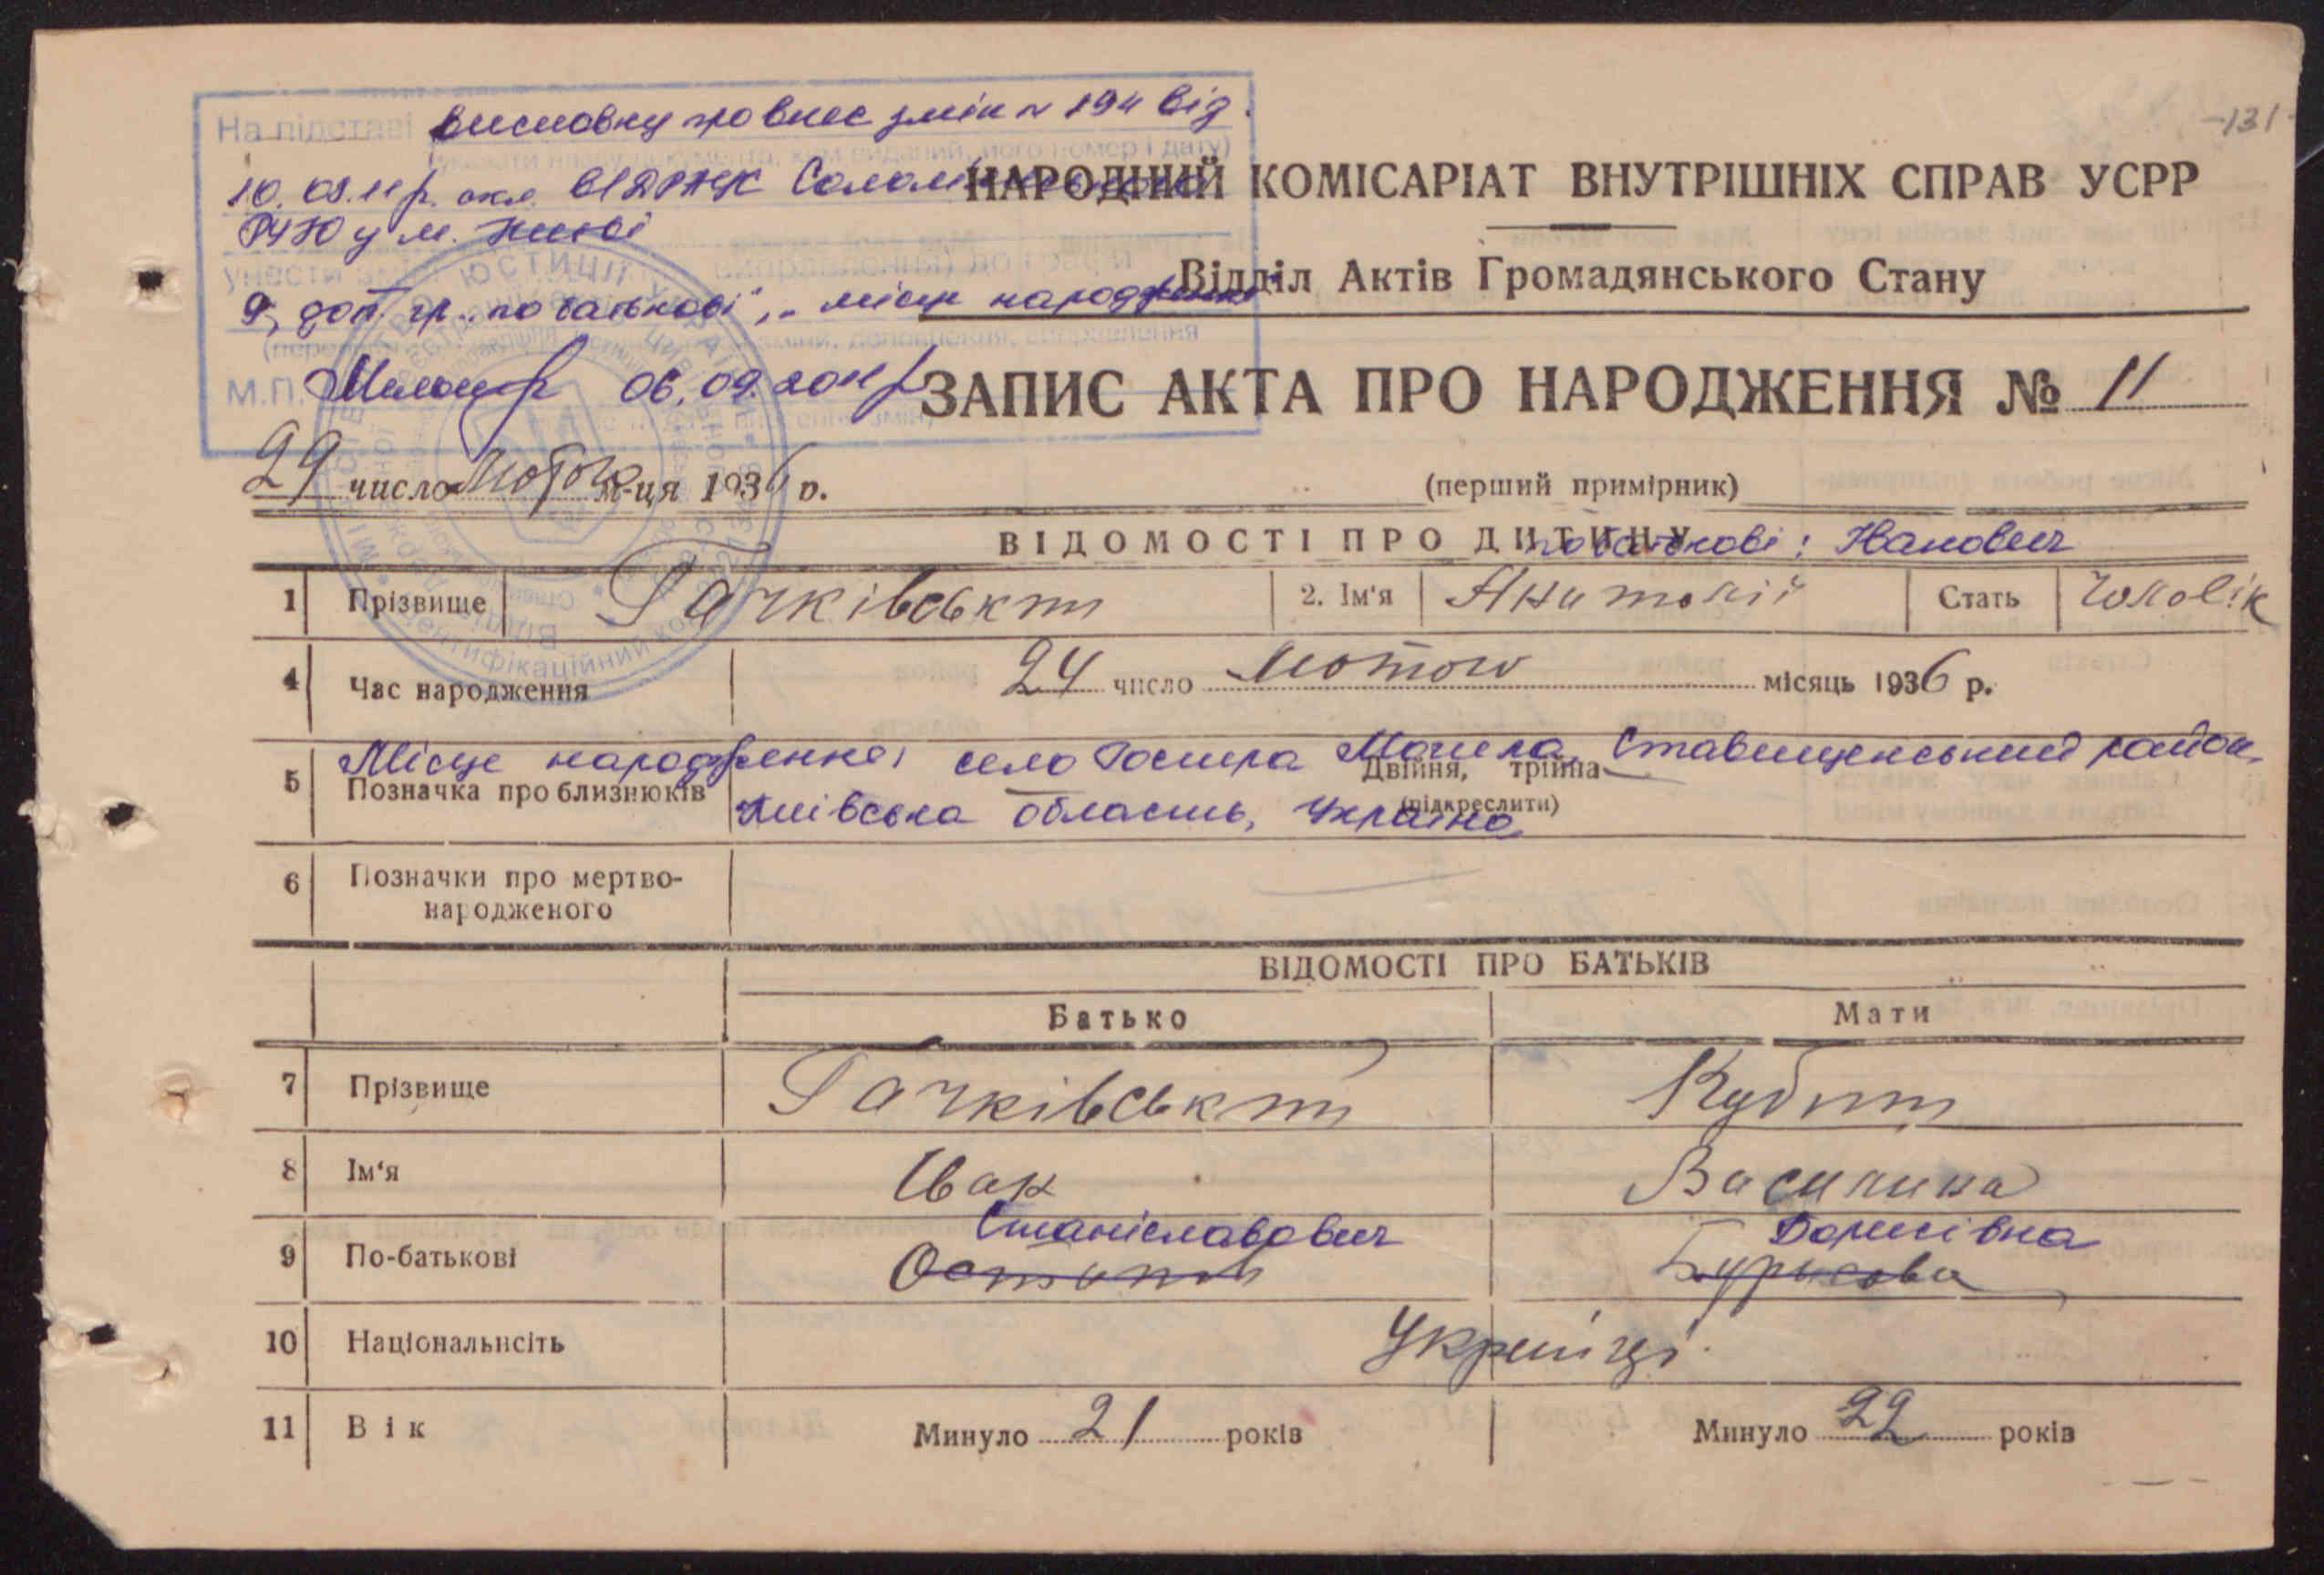 -131-
На підставі висновку про внес змін № 194 від
10.08.11р. скл. ВДРАЦС Солом'янського
РУЮ у м. Києві
унести зміни
9, доп. гр. "по батькові", "місце народження"
М.П. 06.09.2011р
НАРОДНИЙ КОМІСАРІАТ ВНУТРІШНІХ СПРАВ УСРР
Відділ Актів Громадянського Стану
ЗАПИС АКТА ПРО НАРОДЖЕННЯ № 11
29 число Лютого м-ця 1936 р.
(перший примірник)
ВІДОМОСТІ ПРО ДИТИНУ
по батькові: Іванович
1 Прізвище Гачківський 2. Ім'я Анатолій Стать Чоловік
4 Час народження 24 число Лютого місяць 1936 р.
Місце народження: село Гостра Могила, Ставищенський район,
5 Позначка про близнюків Двійня, трійня
(підкреслити)
Київська область, Україна
6 Позначки про мертво-
народженого
ВІДОМОСТІ ПРО БАТЬКІВ
Батько Мати
7 Прізвище Гачківський
8 Ім'я Іван Василина
Станіславович Борисівна
9 По-батькові
10 Національнсіть Українці
11 Вік Минуло 21 років Минуло 22 років